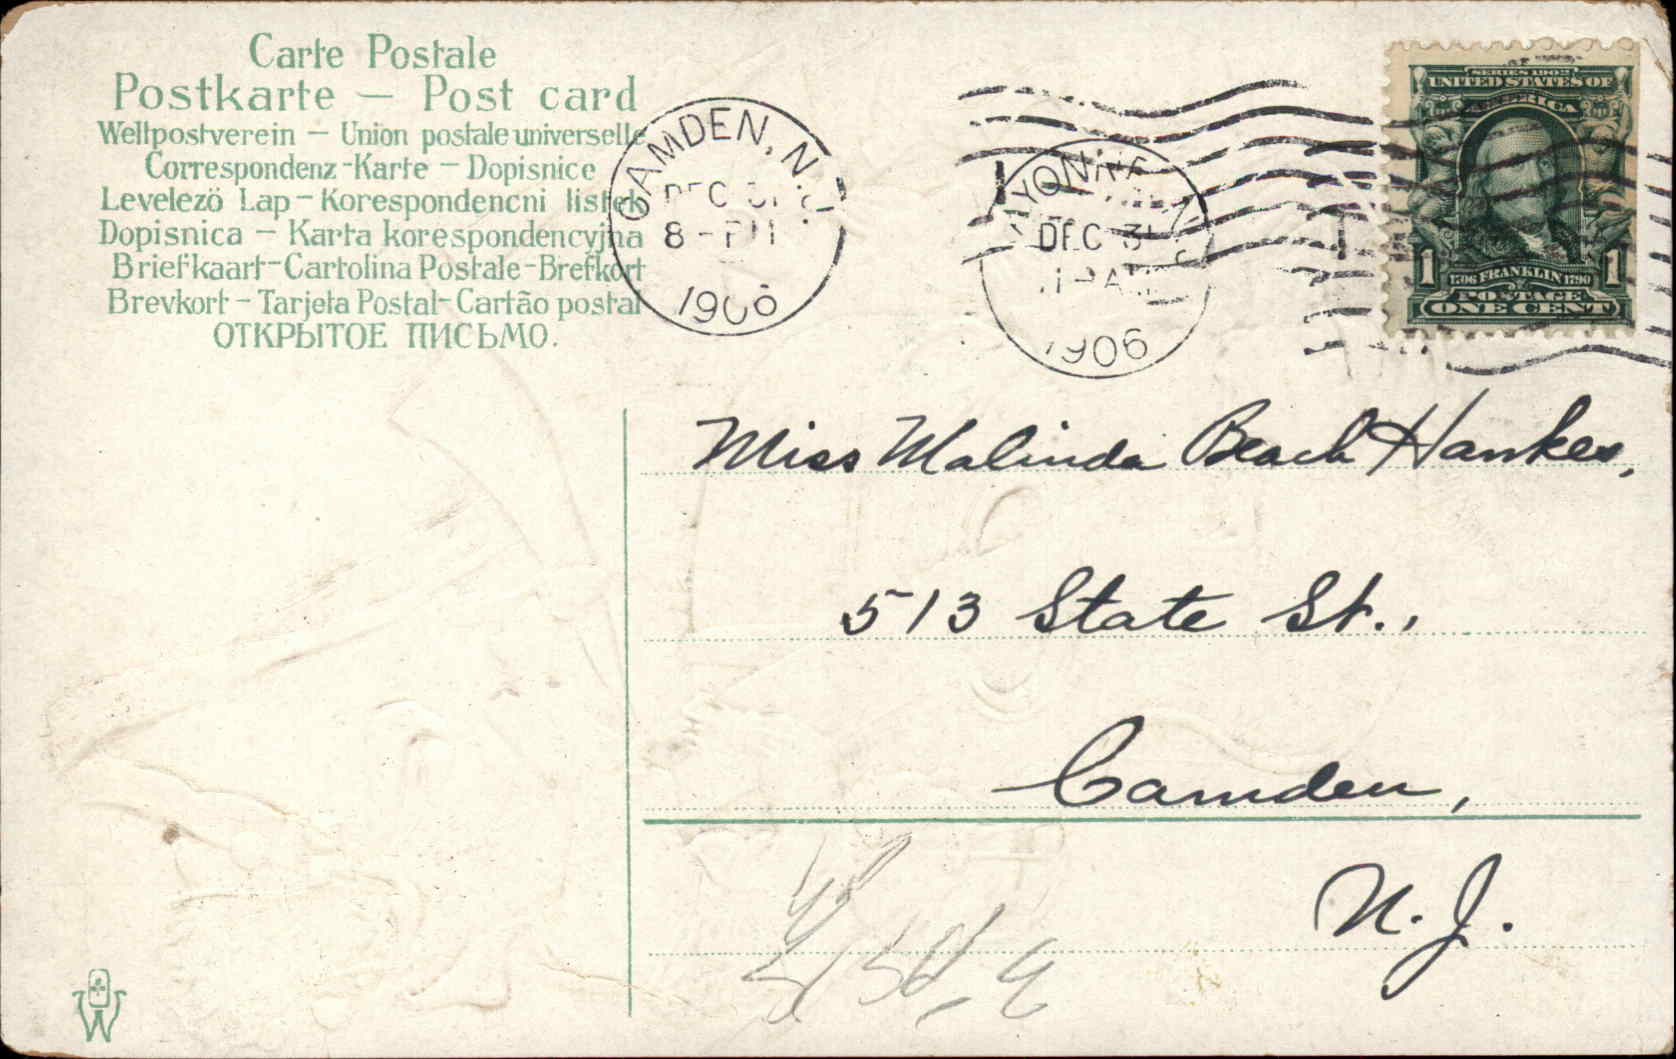 Carte Postale
Postkarte — Post card
Weltpostverein — Union postale universelle
Correspondenz-Karte — Dopisnice
Levelezö Lap — Korespondencni listek
Dopisnica — Karta korespondencyjna
Briefkaart-Cartolina Postale-Brefkort
Brevkort - Tarjeta Postal- Cartão postal
ОТКРЫТОЕ ПИСЬМО.
CAMDEN, N.J.
DEC 31
8 - PM
1906
DEC 31
1906
SERIES 1902
UNITED STATES OF
AMERICA
1 1706 FRANKLIN 1790 1
POSTAGE
ONE CENT
Miss Malinda Beach Hankes,
513 State St.,
Camden,
N. J.